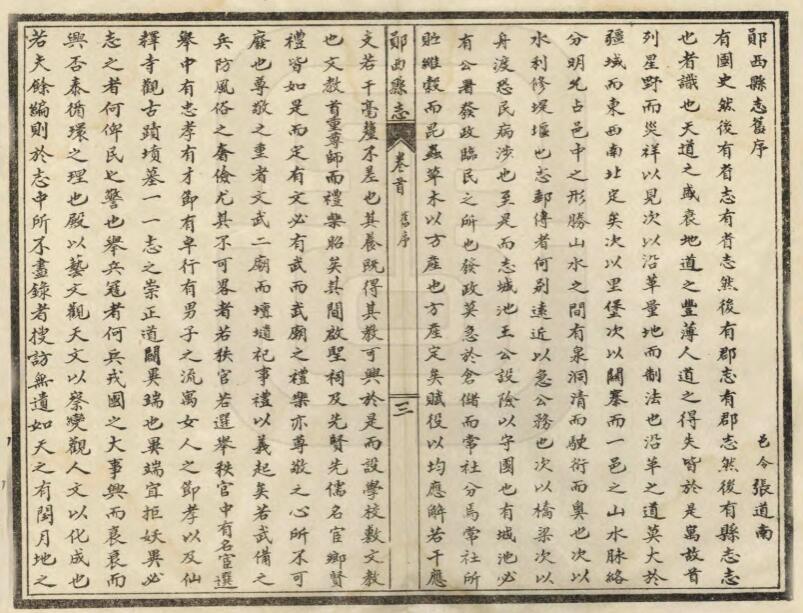 鄖西縣志舊序
邑令張道南
有國史然後有省志有省志然後有郡志有郡志然後有縣志志
也者識也天道之盛衰地道之豐薄人道之得失皆於是寓故首
列星野而災祥以見次以沿革量地而制法也沿革之道莫大於
疆域而東西南北定矣次以里堡次以關寨而一邑之山水脉絡
分明先占邑中之形勝山水之間有泉洞清而駛衍而奧也次以
水利修堤堰也志郵傳者何別遠近以急公務也次以橋梁次以
舟渡恐民病涉也至是而志城池王公設險以守國也有城池必
有公署發政臨民之所也發政莫急於倉儲而常社分焉常社所
貯維穀而昆蟲草木以方產也方產定矣賦役以均應解若干應
鄖西縣志
卷首
舊序
三
支若干毫釐不差也其養既得其教可興於是而設學校敷文教
也文教首重尊師而禮樂昭矣其間啟聖祠及先賢先儒名宦鄉賢
禮皆如是而定有文必有武而武廟之禮樂亦尊敬之心所不可
廢也尊敬之重者文武二廟而壇壝祀事禮以義起矣若武備之
兵防風俗之奢儉尤其不可畧者若秩官若選舉秩官中有名宦選
舉中有忠孝有才節有卓行有男子之流寓女人之節孝以及仙
釋寺觀古蹟墳墓一一志之崇正道闢異端也異端宜拒妖異必
志之者何俾民也警也舉兵寇者何兵戎國之大事興而衰衰而
興否泰循環之理也殿以藝文觀天文以察變觀人文以化成也
若夫餘編則於志中所不盡錄者搜訪無遺如天之有閏月地之